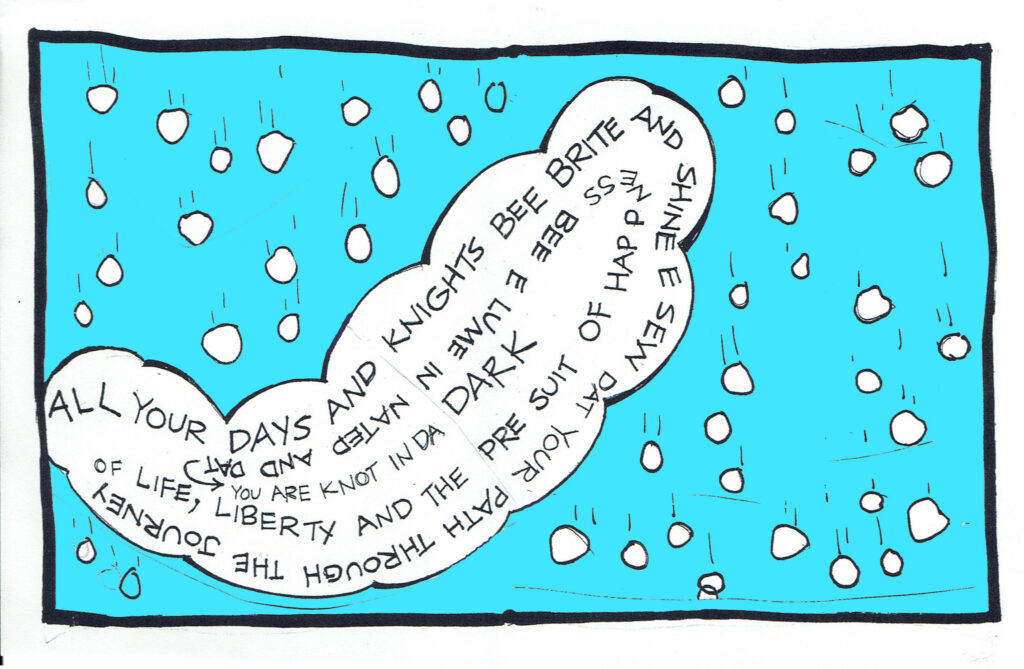 ALL YOUR DAYS AND KNIGHTS BEE BRITE AND
SHINE E SEW DAT YOUR
PATH THROUGH THE JOURNEY
OF LIFE, LIBERTY AND THE PRE SUIT OF HAPP
NE
SS
BEE E LUME IN
NATED AND DAT
YOU ARE KNOT IN DA
DARK